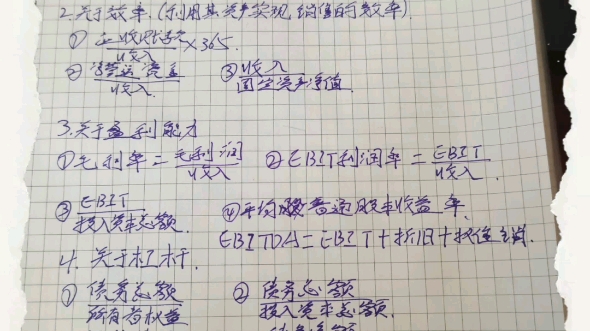 2.关于效率.(利用其资产实现销售的效率)
① 应收账款/收入 ×365
② 净营运资金/收入 ③ 收入/固定资产净值
3.关于盈利能力
①毛利率=毛利润/收入 ②EBIT利润率=EBIT/收入.
③ EBIT/投入资本总额 ④平均普通股本收益率.
EBITDA=EBIT+折旧+摊销
4.关于杠杆.
① 债务总额/所有者权益 ② 债务总额/投入资本总额.